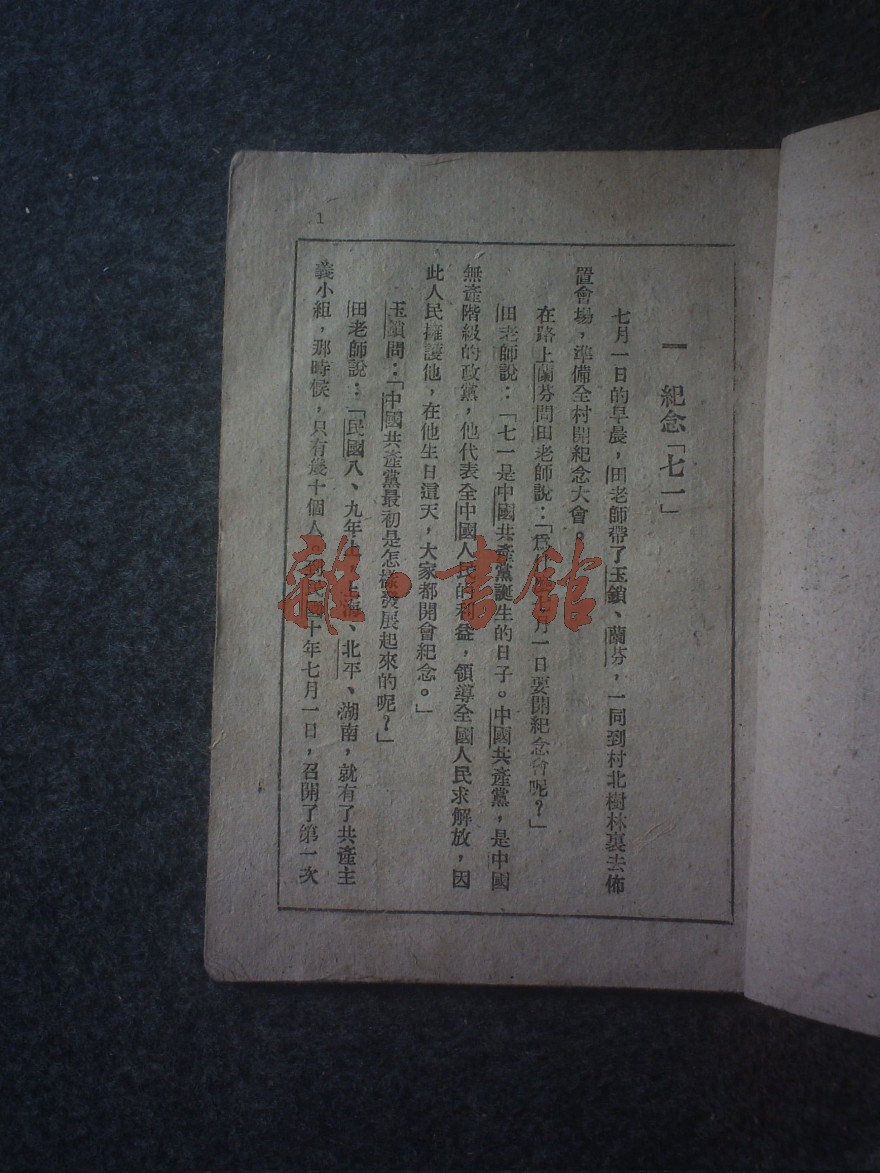 一　紀念「七一」
七月一日的早晨，田老師帶了玉鎖、蘭芬，一同到村北樹林裏去佈
置會場，準備全村開紀念大會。
在路上蘭芬問田老師說：「爲 七月一日要開紀念會呢？」
田老師說：「七一是中國共產黨誕生的日子。中國共產黨，是中國
無產階級的政黨，他代表全中國人民的利益，領導全國人民求解放，因
此人民擁護他，在他生日這天，大家都開會紀念。」
玉鎖問：「中國共產黨最初是怎樣發展起來的呢？」
田老師說：「民國八、九年 上海、北平、湖南，就有了共產主
義小組，那時候，只有幾十個人 到民國十年七月一日，召開了第一次
1
雜·書館